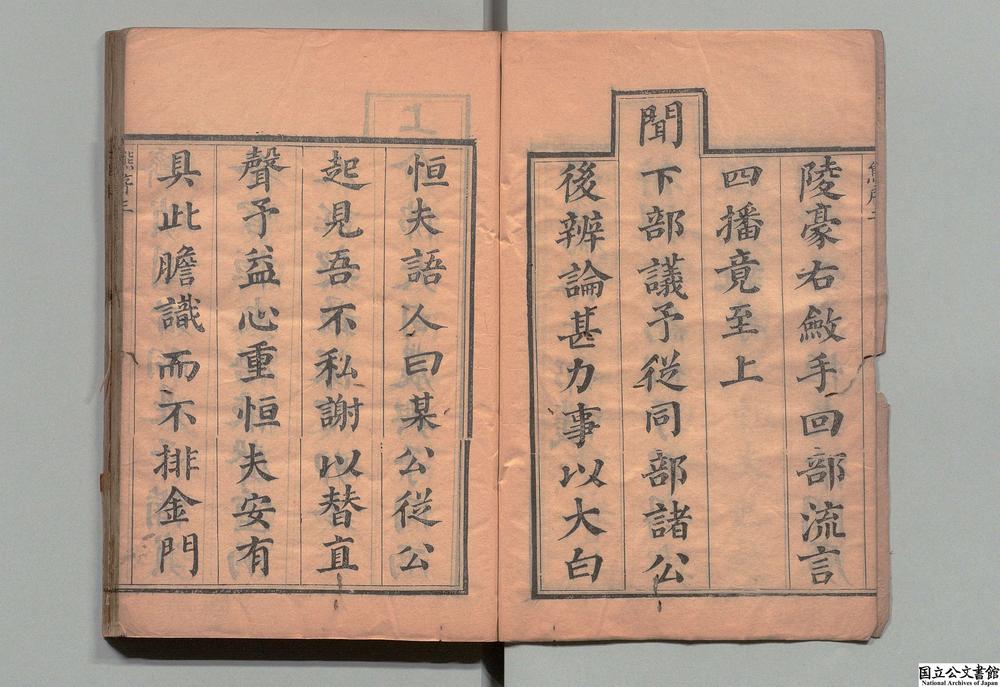 陵豪右斂手回部流言
四播竟至上
聞下部議予從同部諸公
後辨論甚力事以大白
恒夫語人曰某公從公
起見吾不私謝以替直
聲予益心重恒夫安有
具此膽識而不排金門
国立公文書館
National Archives of Japan